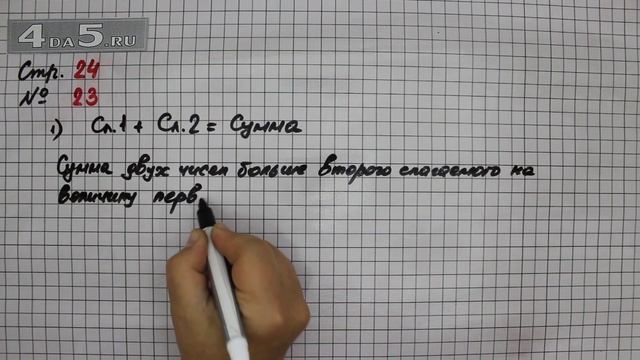 4DA5.RU
Стр. 24
№ 23
1) Сл.1 + Сл.2 = Сумма
Сумма двух чисел больше второго слагаемого на
величину перв